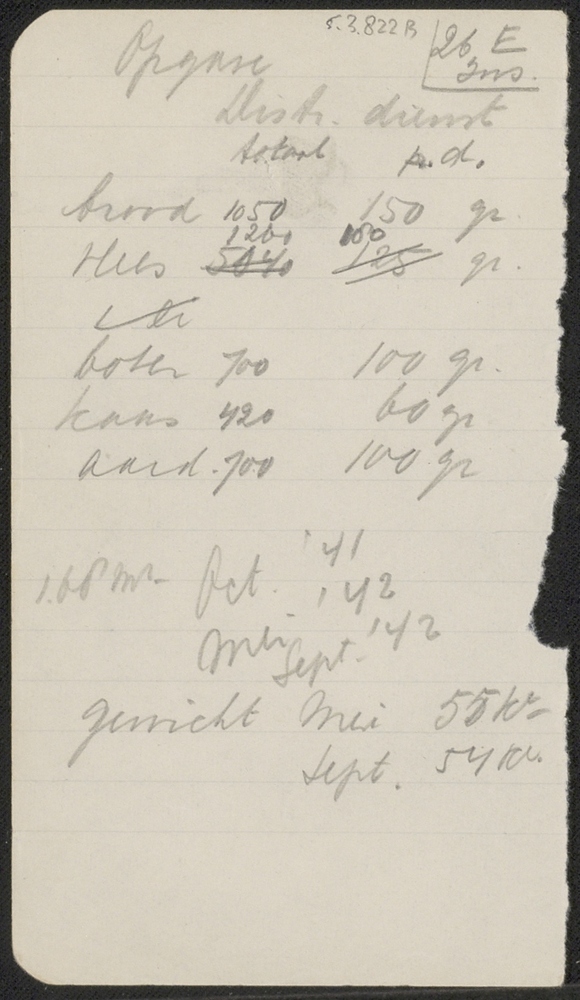 5.3.822B
26 E
Ins.
Opgave
Distr. dienst
totaal p.d.
brood 1050 150 gr.
1200 160
Vlees 5040 125 gr.
boter 700 100 gr.
kaas 420 60 gr
aard. 700 100 gr
1.68 m Oct. '41
'42
Mei '42
Sept.
gewicht Mei 55 K
Sept. 54 K